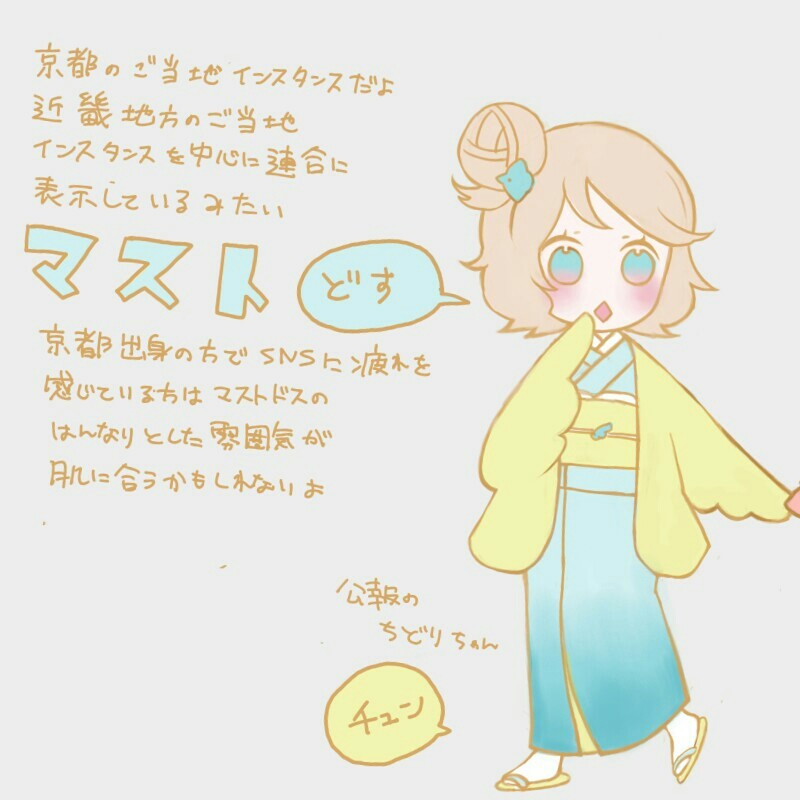 京都のご当地インスタンスだよ
近畿地方のご当地
インスタンスを中心に連合に
表示しているみたい
マスト
どす
京都出身の方でSNSに疲れを
感じている方はマストドスの
はんなりとした雰囲気が
肌に合うかもしれないよ
公報の
ちどりちゃん
チュン